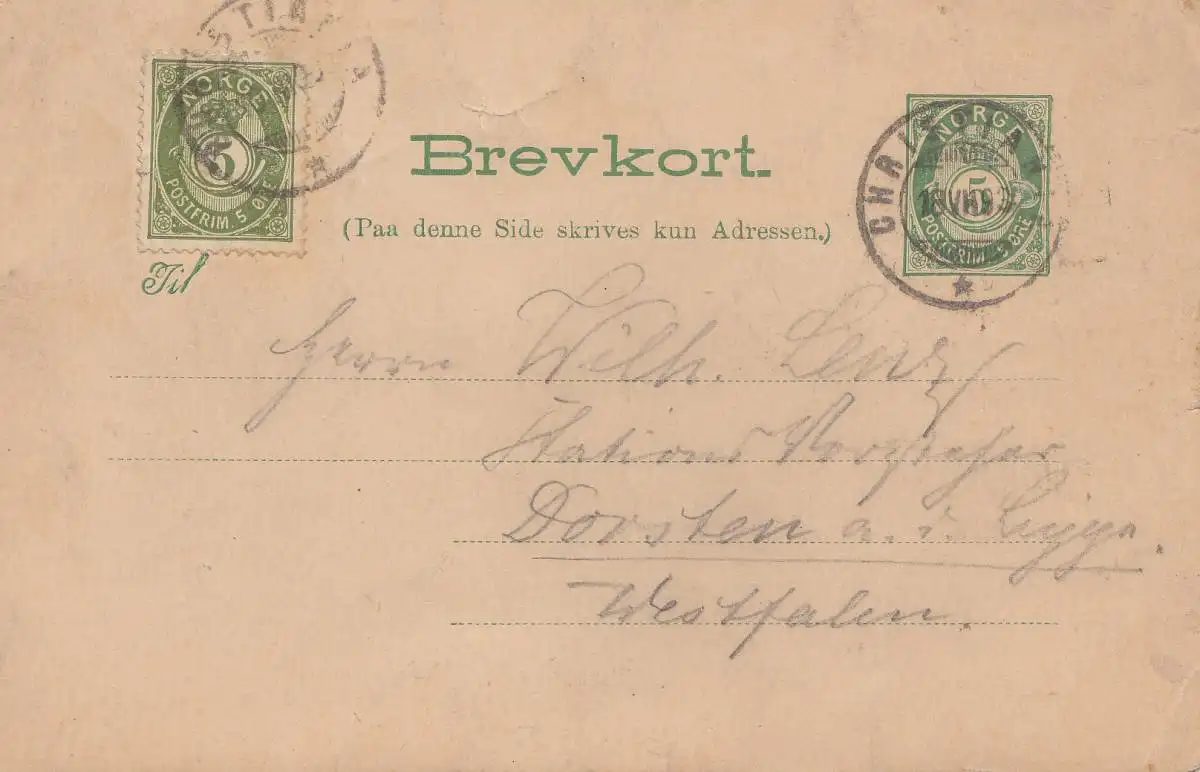 NORGE
5
POSTFRIM 5 ØRE
Brevkort.
(Paa denne Side skrives kun Adressen.)
NORGE
5
POSTFRIM 5 ØRE
Til
Herrn Wilh. Lenz
Stations Vorsteher
Dorsten a. d. Lippe.
Westfalen.